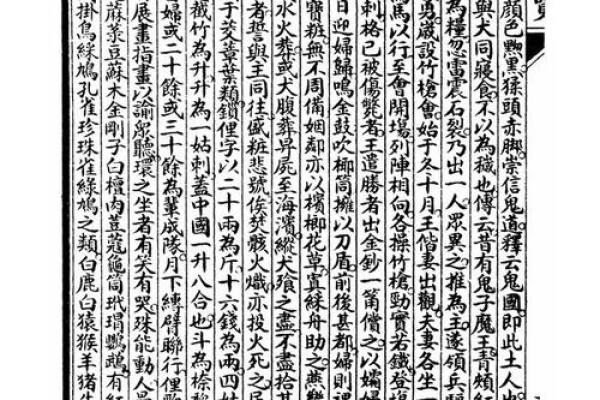 顏色黝黑猱頭赤脚崇信鬼道釋云鬼國即此土人
與犬同寢食不以為穢也傳云昔有鬼子魔王青頰紅
為糧忽雷震石裂乃出一人眾異之推為主遂領兵
勇歲設竹槍會始于冬十月王偕妻出觀夫妻各坐一
馬以行至會開塲列陣相向各操竹槍勁實若鐵登塲
刺格已被傷斃者王遣勝者出金鈔一箇償之以孀婦
日迎婦歸鳴金鼓吹椰筒擁以刀盾前後甚都婦則
寶粧無不周備姻鄰亦以檳榔花草寘綵舟助之燕
水火葬或犬腹葬舁屍至海濱縱犬飡之盡不盡拾其
者誓與主同往盛粧悲號俟焚骸火熾亦投火死之
于茭葦葉類鎖俚字以二十兩為斤十六錢為兩四姑
截竹為升升為一姑刺蓋中國一升八合也斗為
婦或二十餘或三十餘為輩成隊月下縳臂聯行俚歌
展畫指畫以諭眾聽環之坐者有笑有哭殊能動人
蔴菉豆蘇木金剛子白檀肉荳蔻龜筒玳瑁鸚鵡有紅
掛鳥綵鳩孔雀珍珠雀綠鳩之類白鹿白猿猴羊猪